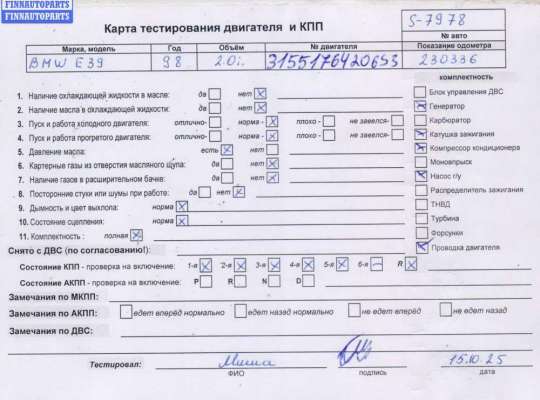 FINNAUTOPARTS
FINNAUTOPARTS
Карта тестирования двигателя и КПП
S-7978
№ авто
Марка, модель Год Объём № двигателя Показание одометра
BMW E39 98 2.0i. 31551764206S3 230336
комплектность
1. Наличие охлаждающей жидкости в масле: да нет
2. Наличие масла в охлаждающей жидкости: да нет
3. Пуск и работа холодного двигателя: отлично- норма - плохо - не завелся-
4. Пуск и работа прогретого двигателя: отлично- норма - плохо - не завелся-
5. Давление масла: есть нет
6. Картерные газы из отверстия масляного щупа: да нет
7. Наличие газов в расширительном бачке: да нет
8. Посторонние стуки или шумы при работе: да нет
9. Дымность и цвет выхлопа: норма
10. Состояние сцепления: норма
11. Комплектность : полная
Блок управления ДВС
Генератор
Карбюратор
Катушка зажигания
Компрессор кондиционера
Моновпрыск
Насос г/у
Распределитель зажигания
ТНВД
Турбина
Форсунки
Проводка двигателя
Снято с ДВС (по согласованию!):
Состояние КПП - проверка на включение: 1-я 2-я 3-я 4-я 5-я 6-я R
Состояние АКПП - проверка на включение: P R N D
Замечания по МКПП:
Замечания по АКПП: едет вперёд нормально едет назад нормально не едет вперёд не едет назад
Замечания по ДВС:
Тестировал: Миша 15.10.25
ФИО подпись дата